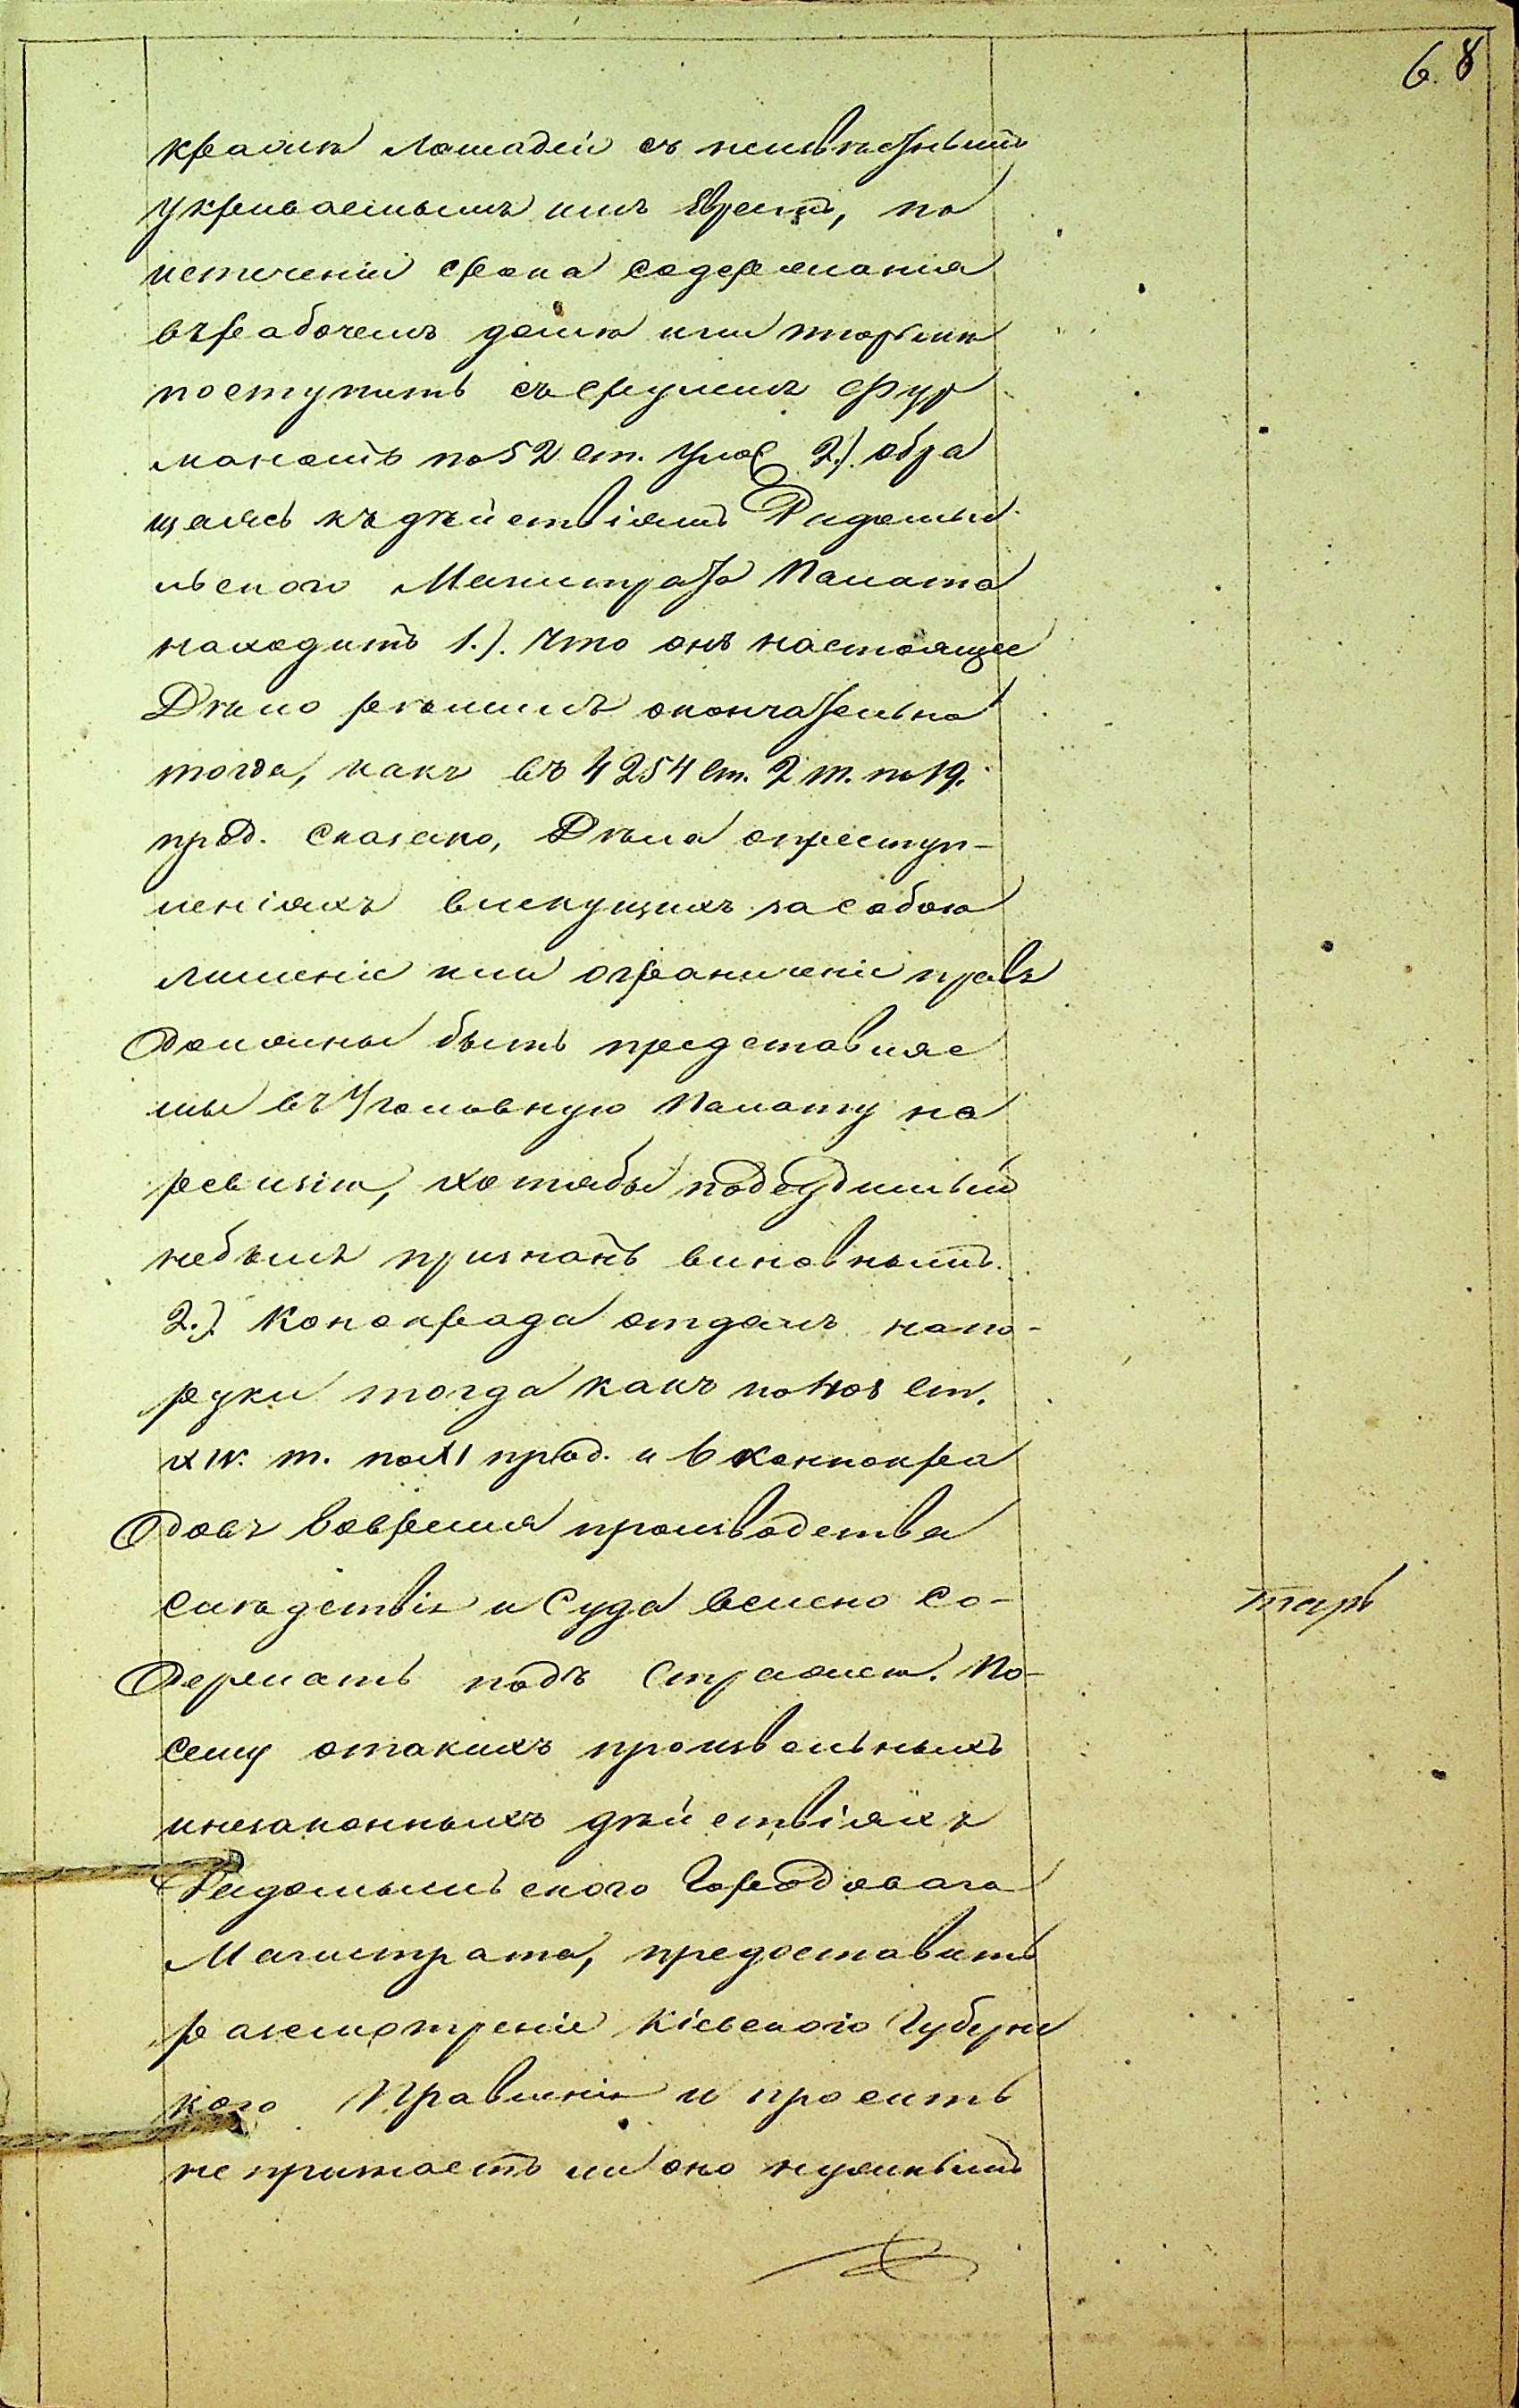 6. 8
кражѣ лошадей съ неизвѣстнымъ
укрываемымъ имъ Евреемъ, по
истеченіи срока содержанія
въ рабочемъ домѣ или тюрьмѣ
поступить съ Сруулемъ Фур
маномъ по 52 ст. Улож 2.) обра
щаясь къ дѣйствіямъ Радомы
льскаго Магистрата Палата
находитъ 1.). что онъ настоящее
Дѣло рѣшилъ окончательно
тогда, какъ въ 4254 ст. 2 т. по 19.
прод. сказано, Дѣла опреступ-
леніяхъ влекущихъ засобою
лишеніе или ограниченіе правъ
должны быть представляе
мы въ Уголовную Палату на
ревизію, хотябы подсудимый
небылъ признанъ виновнымъ.
2.) Конокрада отдалъ напо-
руки тогда какъ по ст.
XIV. т. по XI прод. и 6 конокра
довъ вовремя производства
слѣдствія и Суда велено со-
держать подъ стражею. По-
сему отакихъ произвольныхъ
инезаконныхъ дѣйствіяхъ
Радомысльского Городоваго
Магистрата, предоставить
разсмотреніе Кіевского Губернс
кого Правленія и просить
не признаетъ ли оно нужнымъ
тарь